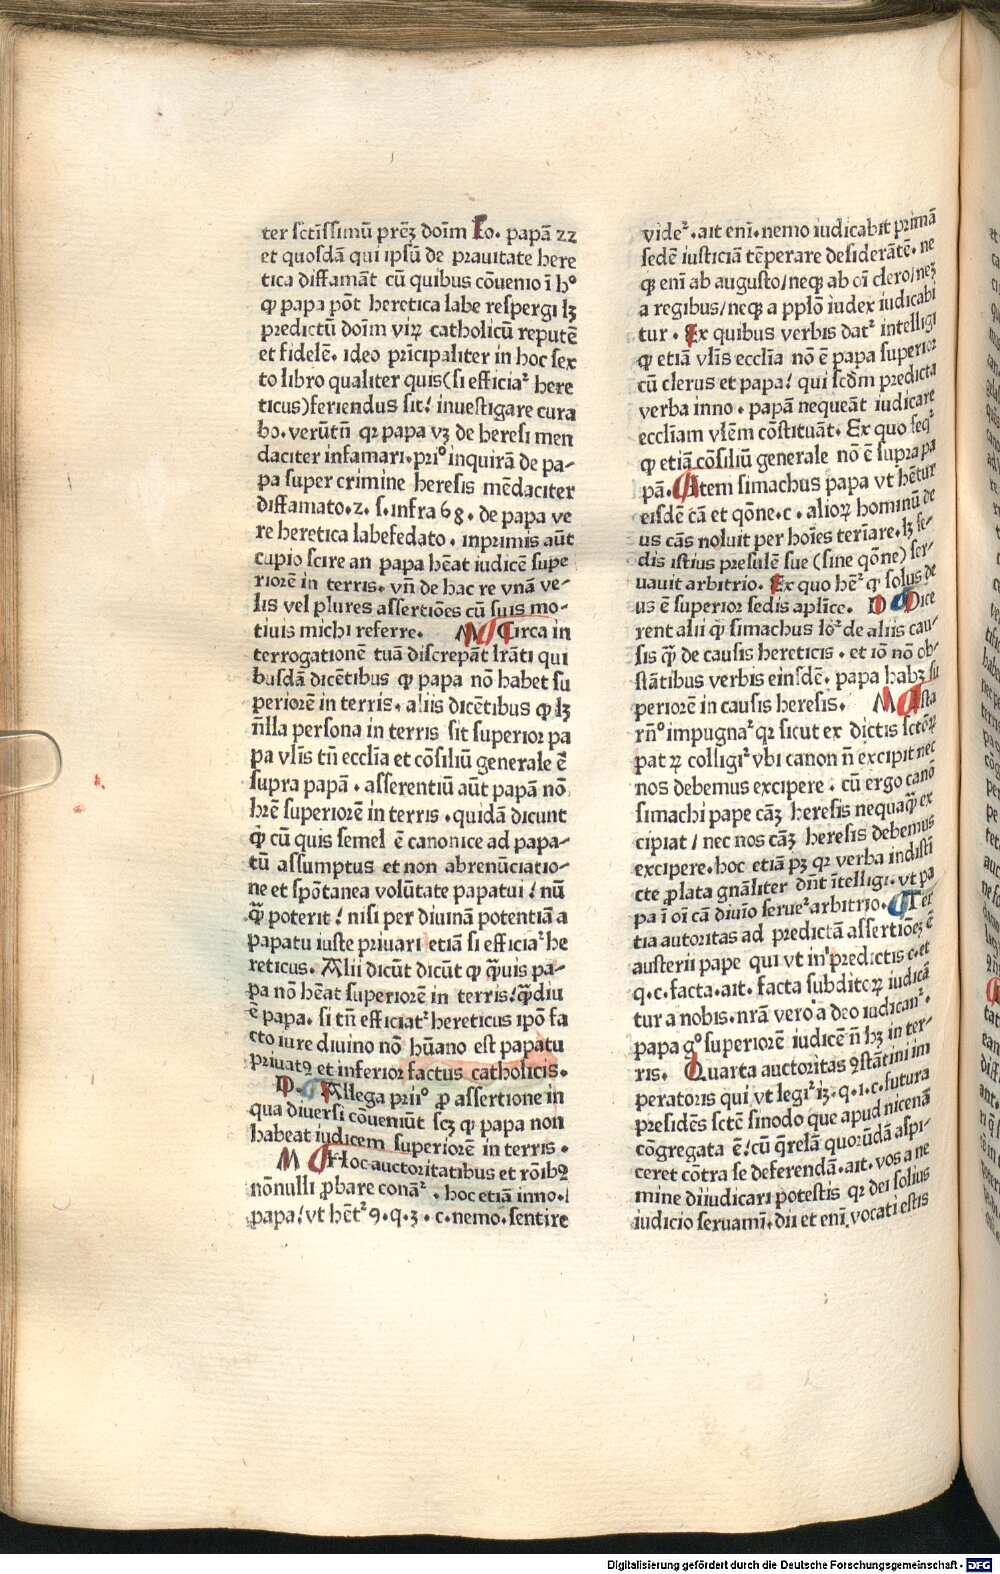 ter sctīssimū prēz doīm Io. papā 22
et quosdā qui ipsū de prauitate here
tica diffamāt cū quibus cōuenio ī h°
ꝙ papa pōt heretica labe respergi lꝫ
predictū doīm viꝝ catholicū reputē
et fidelē. ideo prīcipaliter in hoc sex
to libro qualiter quis(si efficiaᵗ here
ticus)feriendus sit! inuestigare cura
bo. verūtn̄ qꝛ papa vꝫ de heresi men
daciter infamari. pri° inquirā de pa-
pa super crimine heresis mēdaciter
diffamato. 2. s. infra 68. de papa ve
re heretica labefedato. inprimis aūt
cupio scire an papa hēat iudicē supe
riorē in terris. vn̄ de hac re vnā ve-
lis vel plures assertiōes cū suis mo-
tiuis michi referre. M Circa in
terrogationē tuā discrepāt lrāti qui
busdā dicētibus ꝙ papa nō habet su
periorē in terris. aliis dicētibus ꝙ lꝫ
n̄lla persona in terris sit superior pa
pa vlīs tn̄ ecclīa et cōsiliū generale ē
supra papā. asserentiū aūt papā nō
hr̄e superiorē in terris. quidā dicunt
ꝙ cū quis semel ē canonice ad papa-
tū assumptus et non abrenūciatio-
ne et spōtanea volūtate papatui! nū
ꝙ̄ poterit! nisi per diuinā potentiā a
papatu iuste priuari etiā si efficiaᵗ he
reticus. Alii dicūt dicūt ꝙ ꝙ̄uis pa-
pa nō hēat superiorē in terris! ꝙ̄diu
ē papa. si tn̄ efficiatᵗ hereticus ipō fa
cto iure diuino nō hūano est papatu
priuatꝰ et inferior factus catholicis.
D. Allega prii° ꝓ assertione in
qua diuersi cōueniūt scꝫ ꝙ papa non
habeat iudicem superiorē in terris.
M Hoc auctoritatibus et rōibꝰ
nōnulli ꝓbare conāᵗ. hoc etiā inno.
papa! vt hētᵗ 9. q. 3. c. nemo. sentire
videᵗ. ait enī. nemo iudicabit primā
sedē iusticiā tēperare desiderātē. ne
qꝫ enī ab augusto/ neqꝫ ab oī clero/ neqꝫ
a regibus/ neqꝫ a pplō iudex iudicabi
tur. Ex quibus verbis datᵗ intelligi
ꝙ etiā vlīs ecclīa nō ē papa superior
cū clerus et papa! qui scd̄m predicta
verba inno. papā nequeāt iudicare
eccliam vlēm cōstituāt. Ex quo seqᵗ
ꝙ etiā cōsiliū generale nō ē supra pa
pā. Item simachus papa vt hētur
eisdē cā et qōne. c. alioꝝ hominū de
us cās noluit per hoīes terīare. lꝫ se-
dis istius presulē sue (sine qōne) ser-
uauit arbitrio. Ex quo hēᵗ ꝙ solus de
us ē superior sedis aplīce. D Dice
rent alii ꝙ simachus lōᵗ de aliis cau-
sis ꝙ̄ de causis hereticis. et iō nō ob-
stātibus verbis einsdē. papa habꝫ su
periorē in causis heresis. M Ista
rn̄° impugnaᵗ qꝛ sicut ex dictis sctōꝝ
patꝝ colligiᵗ vbi canon n̄ excipit nec
nos debemus excipere. cū ergo canō
simachi pape cāꝫ heresis nequaꝙ̄ ex
cipiat/ nec nos cāꝫ heresis debemus
excipere. hoc etiā pꝫ qꝛ verba indistī
cte ꝓlata gnāliter dn̄t ītelligi. vt pa
pa ī oī cā diuīo serueᵗ arbitrio. Ter
tia autoritas ad predictā assertioēꝫ ē
austerii pape qui vt inᵗ predictis c. et
q. c. facta. ait. facta subditoꝝ iudicā
tur a nobis. nrā vero a deo iudicanᵗ.
papa g° superiorē iudicē n̄ hꝫ in ter-
ris. Quarta auctoritas ꝯstātini im
peratoris qui vt legiᵗ iꝫ. q. 1. c. futura
presidēs sctē sinodo que apud nicenā
cōgregata ē! cū qrelā quorūdā aspi-
ceret cōtra se deferendā. ait. vos a ne
mine diiudicari potestis qꝛ dei solius
iudicio seruamī. dii et enī vocati estis
Digitalisierung gefördert durch die Deutsche Forschungsgemeinschaft - DFG